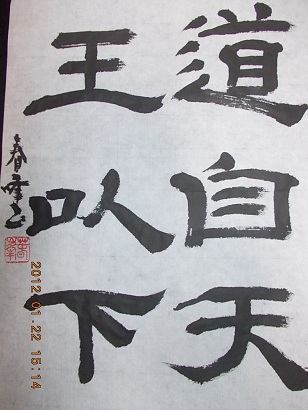 道自天
王以下
春雪
2012.01.22 15:14